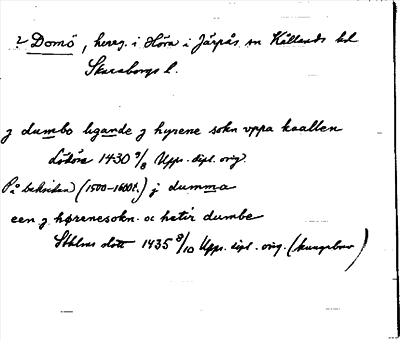 2 Domö, hereg. i Höra i Järpås sn Kållands hd
Skaraborgs l.
j dumbo ligande j hyrene sokn vppa kaallen
Lödöse 1430 9/8 Upps. dipl. orig.
På baksidan (1500-1600t.) j dumma
een j hørenesokn. oc hetir dumbe
Sthlms slott 1435 8/10 Upps. dipl. orig. (kungabrev)